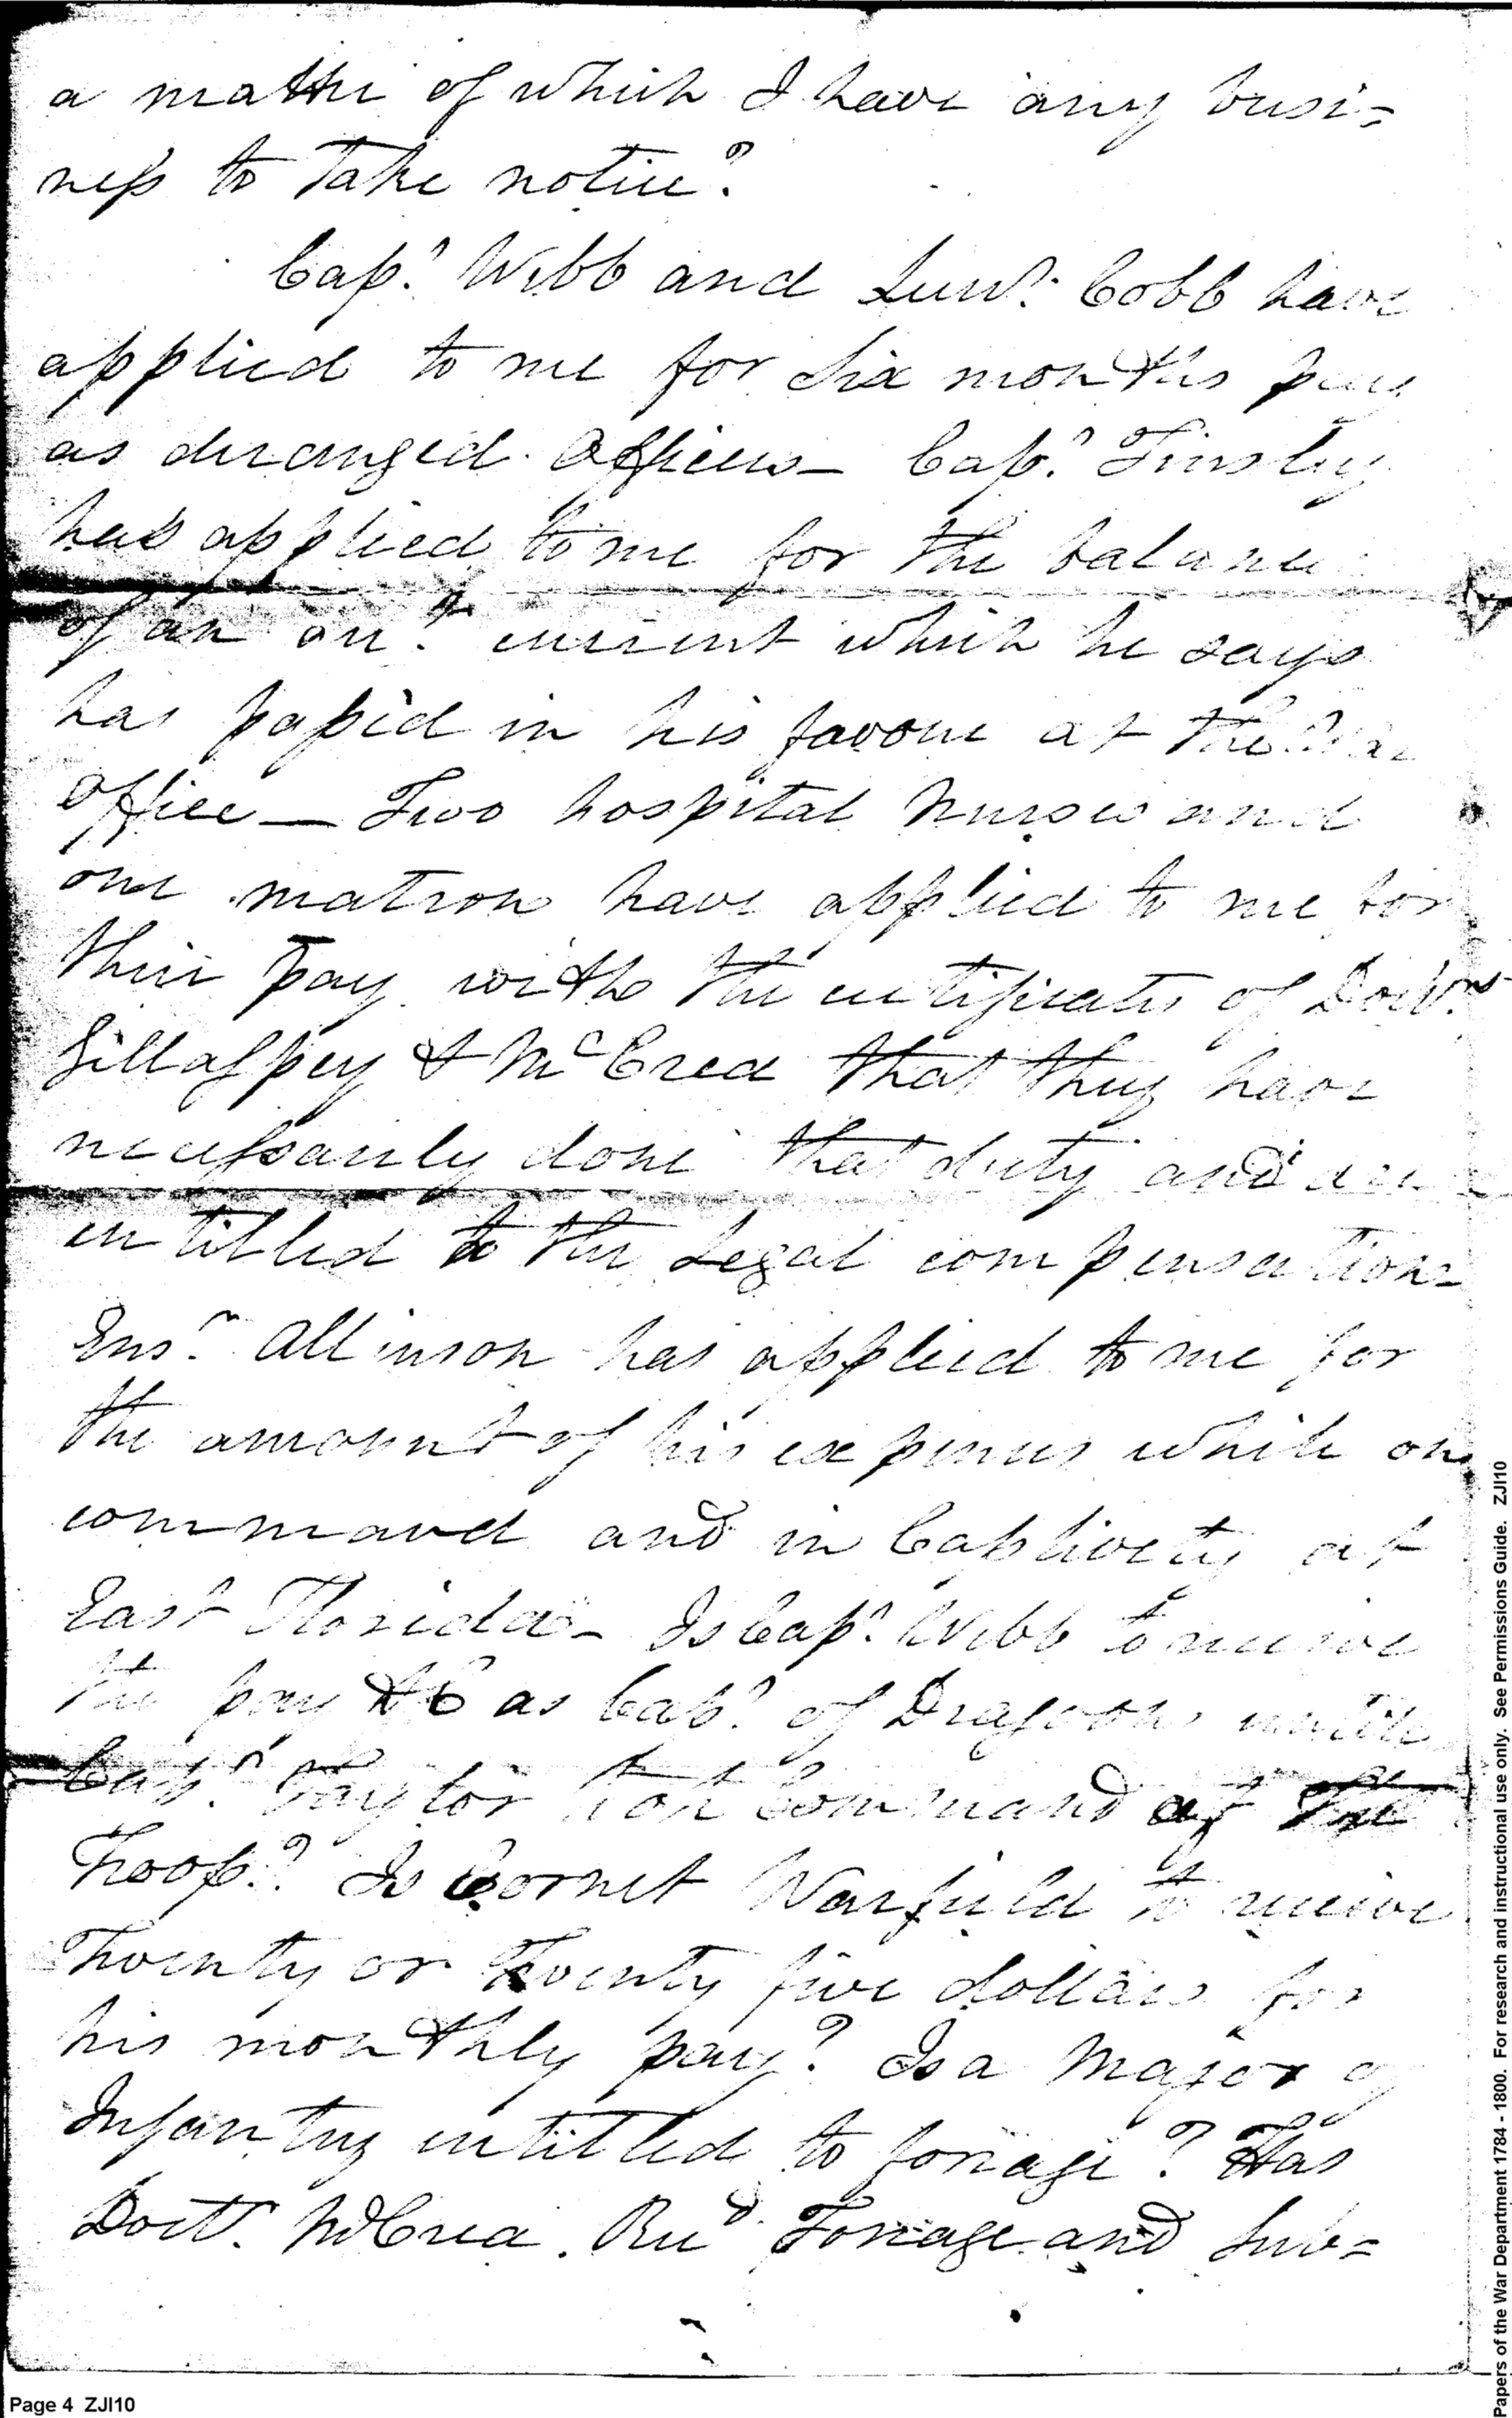 a matter of which I have any busi=
ness to take notice?
Cap.t Webb and Lieu.t Cobb have
applied to me for six months pay
as deranged Officers_ Cap.t Tinsley
has applied to me for the balance
of an acc.t current which he says
has passed in his favour at the War
Office _ Two hospital Nurses and
one matron have applied to me for
their pay with the certificates of Doct.rs
Gillasspey & McCrea that they have
necessarily done that duty and are
entitled to the Legal compensation_
Ens.n Allinson has applied to me for
the amount of his expences while on
command and in Captivity at
East Florida_ Is Cap.t Webb to receive
the pay &C as Cap.t of Dragoons untill
Cap.t Taylor took Command of the
Troop? Is Cornet Warfield to receive
Twenty or Twenty five dollars for
his monthly pay? Is a Major of
Infantry entitled to forage? Has
Doct.r McCrea Rec.d Forage and Sub=
Page 4 ZJI10
Papers of the War Department 1784 - 1800. For research and instructional use only. See Permissions Guide. ZJI10